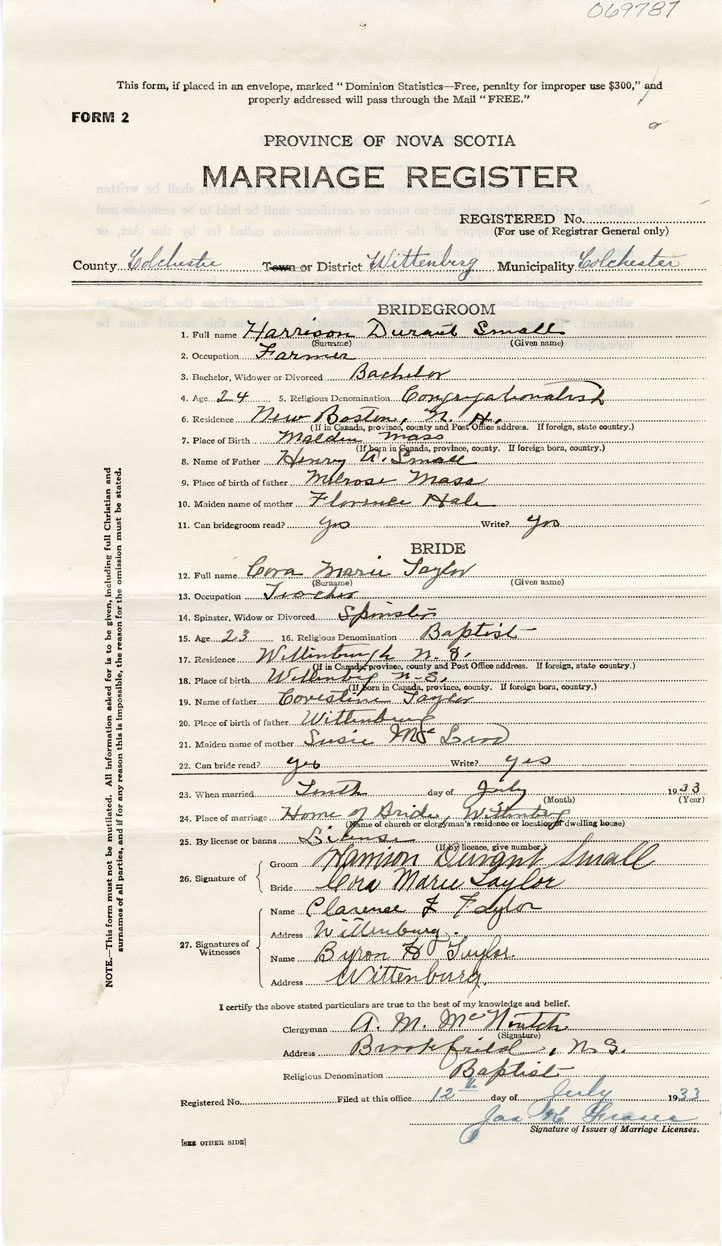 069787
This form, if placed in an envelope, marked "Dominion Statistics—Free, penalty for improper use $300," and
properly addressed will pass through the Mail "FREE."
FORM 2
PROVINCE OF NOVA SCOTIA
MARRIAGE REGISTER
REGISTERED No.
(For use of Registrar General only)
County Colchester Town or District Wittenberg Municipality Colchester
BRIDEGROOM
1. Full name Harrison Durant Small
(Surname) (Given name)
2. Occupation Farmer
3. Bachelor, Widower or Divorced Bachelor
4. Age 24 5. Religious Denomination Congregationalist
6. Residence New Boston, N. H.
(If in Canada, province, county and Post Office address. If foreign, state country.)
7. Place of Birth Malden Mass
(If born in Canada, province, county. If foreign born, country.)
8. Name of Father Henry A. Small
9. Place of birth of father Melrose Mass
10. Maiden name of mother Florence Hale
11. Can bridegroom read? yes Write? yes
BRIDE
12. Full name Cora Marie Taylor
(Surname) (Given name)
13. Occupation Teacher
14. Spinster, Widow or Divorced Spinster
15. Age 23 16. Religious Denomination Baptist
17. Residence Wittenburgh N. S.
(If in Canada, province, county and Post Office address. If foreign, state country.)
18. Place of birth Wittenbg N-S.
(If born in Canada, province, county. If foreign born, country.)
19. Name of father Taylor
20. Place of birth of father Wittenburg
21. Maiden name of mother Susie McLeod
22. Can bride read? yes Write? yes
23. When married Tenth day of July 1933
(Month) (Year)
24. Place of marriage Home of Bride, Wittenbg
(Name of church or clergyman's residence or location of dwelling house)
25. By license or banns License
(If by licence, give number)
26. Signature of
Groom Harrison Durant Small
Bride Cora Marie Taylor
27. Signatures of Witnesses
Name Clarence F Taylor
Address Wittenburg.
Name Byron H Taylor.
Address Wittenburg.
I certify the above stated particulars are true to the best of my knowledge and belief.
Clergyman A. M. McNintch
(Signature)
Address Brookfield, N.S.
Religious Denomination Baptist
Registered No. Filed at this office 12th day of July 1933
Jas Fraser
Signature of Issuer of Marriage Licenses.
[SEE OTHER SIDE]
NOTE.—This form must not be mutilated. All information asked for is to be given, including full Christian and
surnames of all parties, and if for any reason this is impossible, the reason for the omission must be stated.